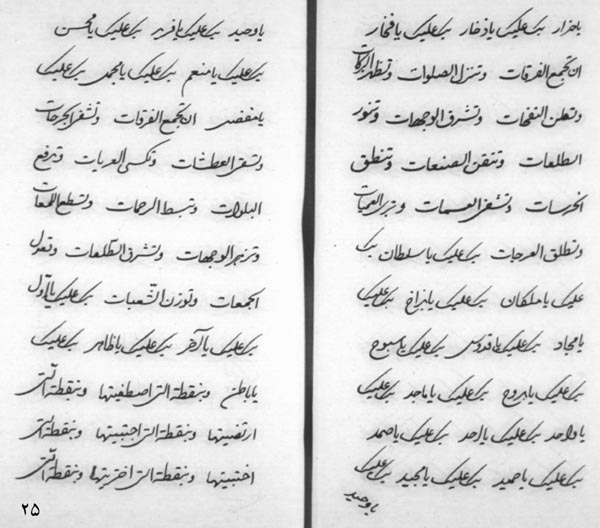 یاخزار بک علیک یاذخار بک علیک یافخار
ان تجمع الفرقات وتنزل الصلوات وتظهر البرکات
وتعلن النفحات وتشرق الوجهات وتنور
الطلعات وتتقن الصنعات وتنطق
الخرسات وتشفی العمیات
وتطلق العرجات بک علیک یاسلطان بک
علیک یاملکان بک علیک یابذاخ بک علیک
یامجاد بک علیک یاقدوس بک علیک یاسبوح
بک علیک یابروح بک علیک یاماجد بک علیک
یاواحد بک علیک یااحد بک علیک یاصمد
بک علیک یاحمید بک علیک یامجید بک علیک
یاوحید
یاوحید بک علیک یافرید بک علیک یامحسن
بک علیک یامنعم بک علیک یامجمل بک علیک
یامفضل ان تجمع الفرقات وتشفی الجرحات
وتسقی العطشات وتکسی العریات وترفع
البلوات وتبسط الرحمات وتسطع اللمعات
وتزهر الوجهات وتشرق الطلعات وتعدل
الجمعات وتوزن الشعبات بک علیک یااول
بک علیک یاآخر بک علیک یاظاهر بک علیک
یاباطن وبنقطة التی اصطفیتها وبنقطة التی
ارتضیتها وبنقطة التی اجتبیتها وبنقطة التی
اختبیتها وبنقطة التی اخترتها وبنقطة التی
۲۵